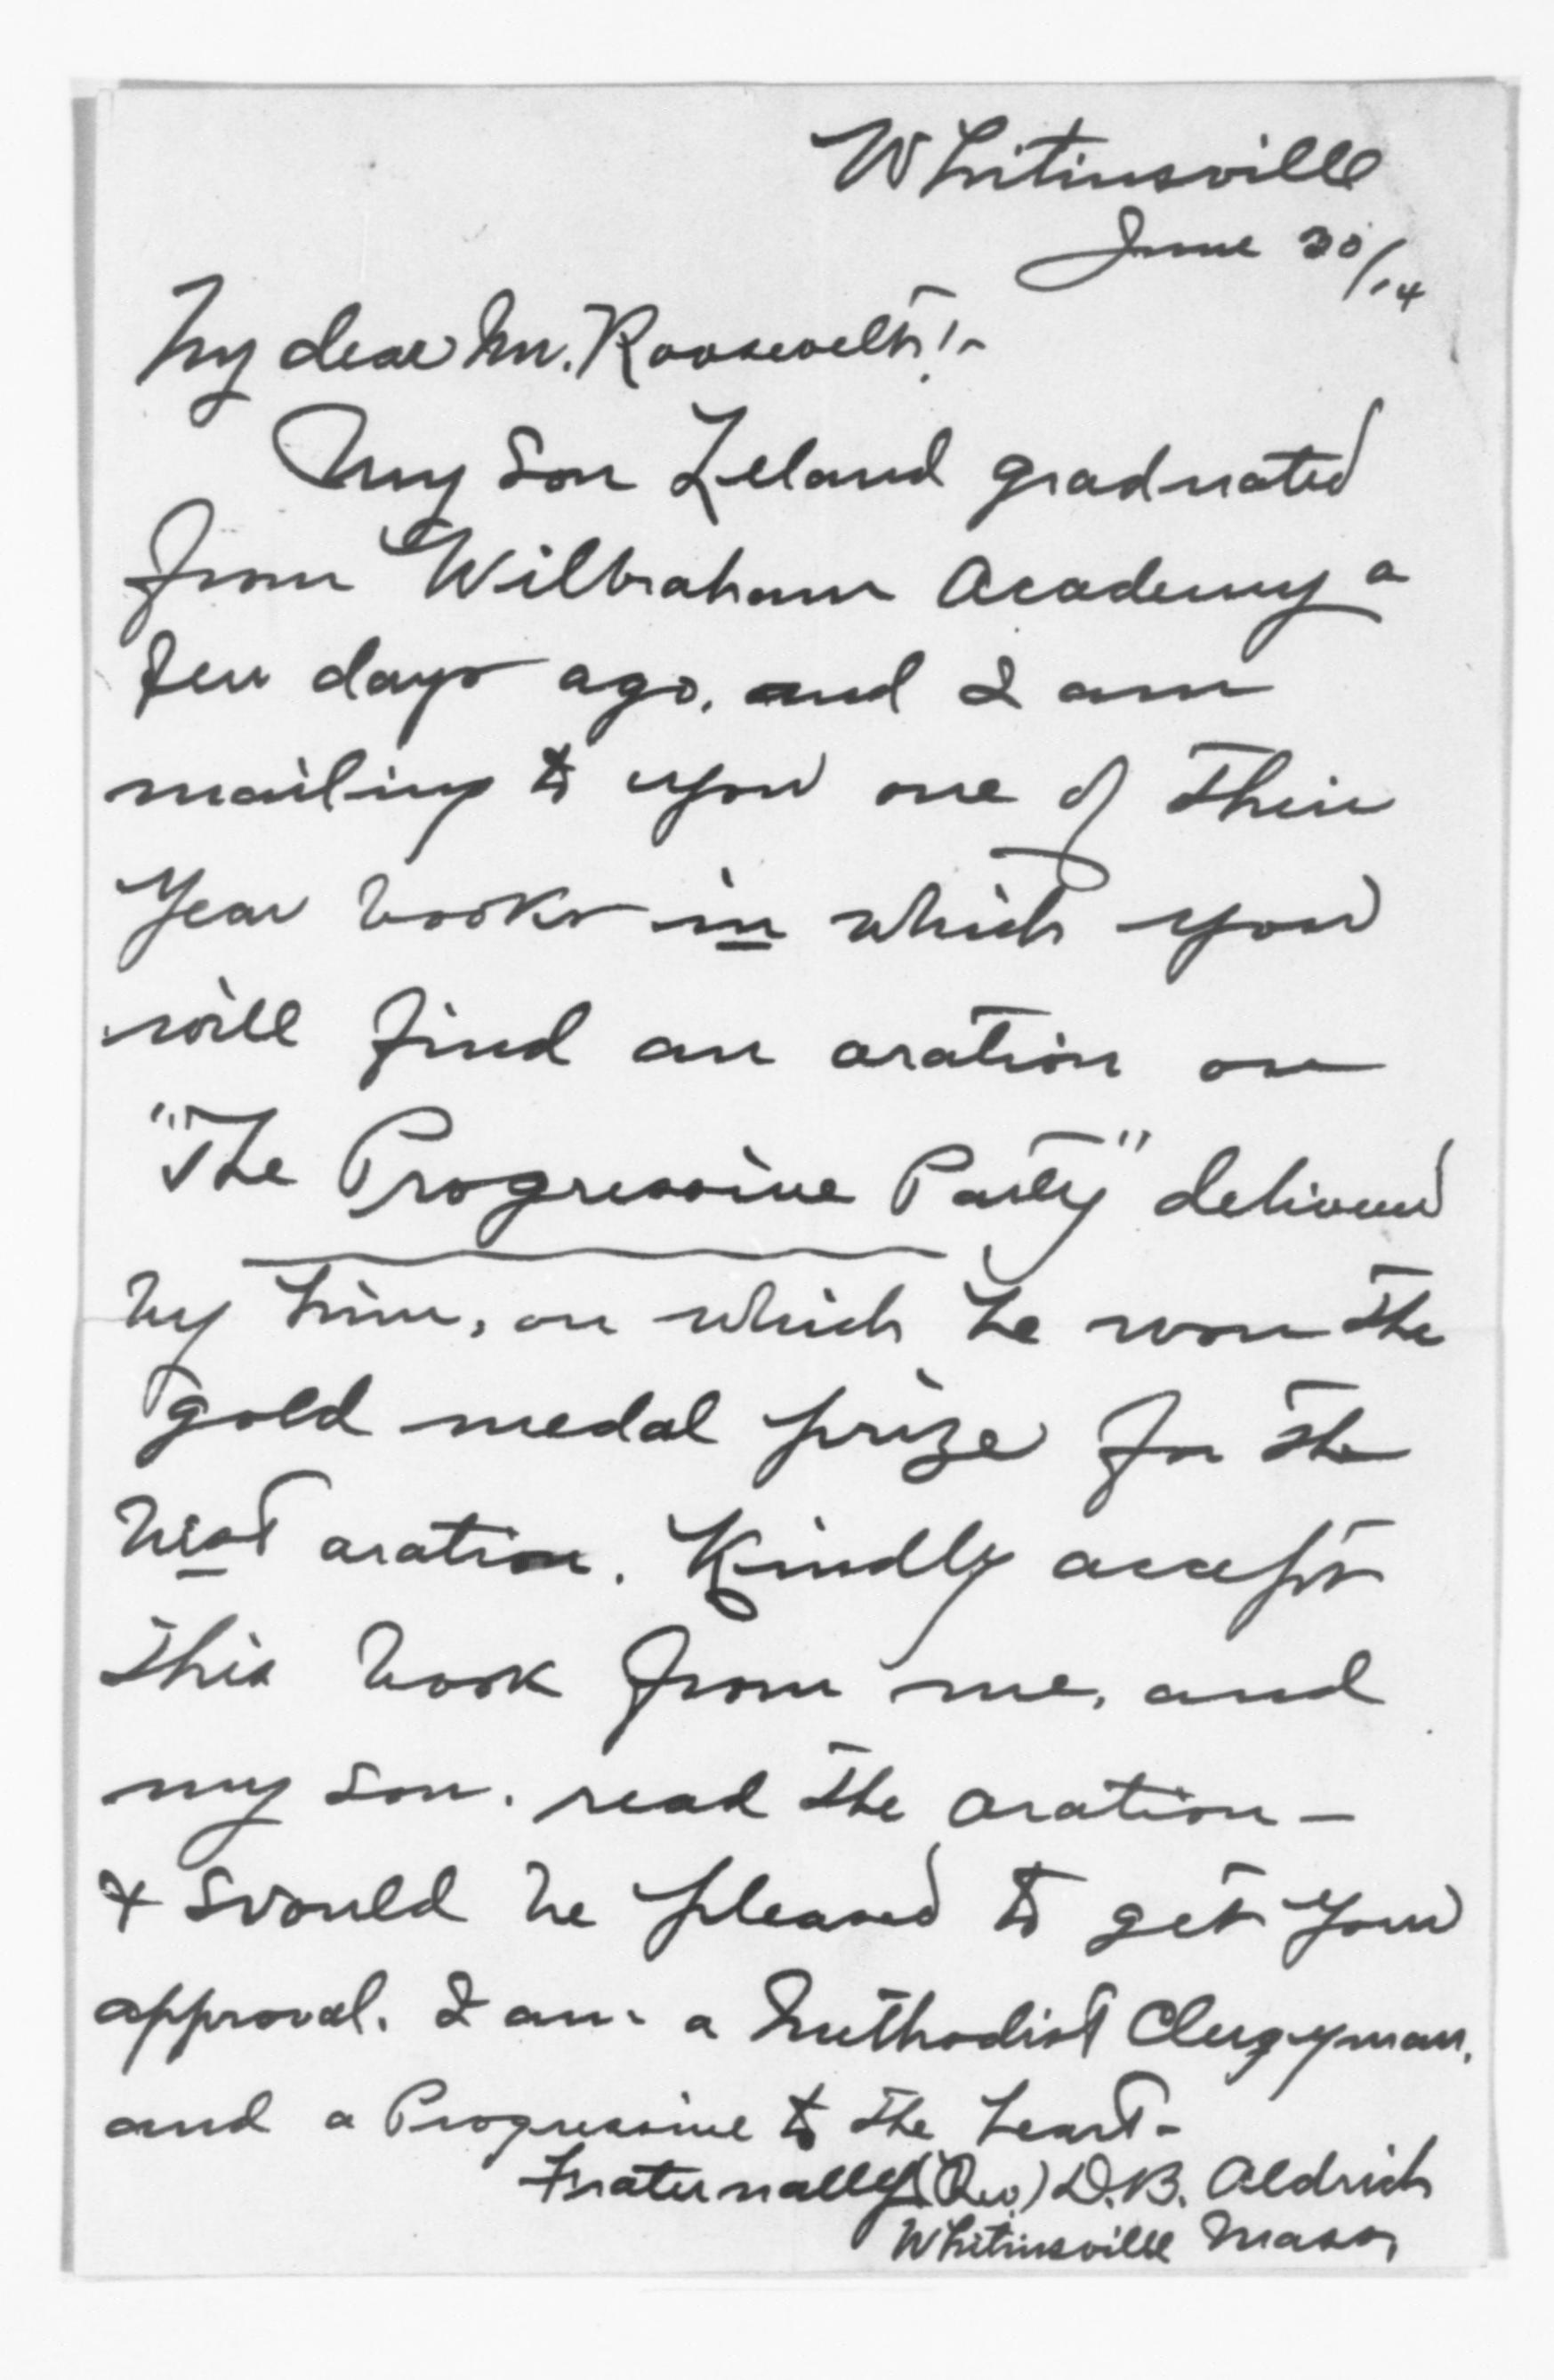 Whitinsville
June 30/14
My dear Mr. Roosevelt:-
My son Leland graduated
from Wilbraham Academy a
few days ago, and I am
mailing to you one of their
Year books in which you
will find an oration on
"The Progressive Party" delivered
by him, on which he won the
gold medal prize for the
best oration. Kindly accept
this book from me, and
my son. read the oration -
& should be pleased to get your
approval. I am a Methodist Clergyman,
and a Progressive to the heart-
Fraternally (Rev.) D.B. Aldrich
Whitinsville Mass,